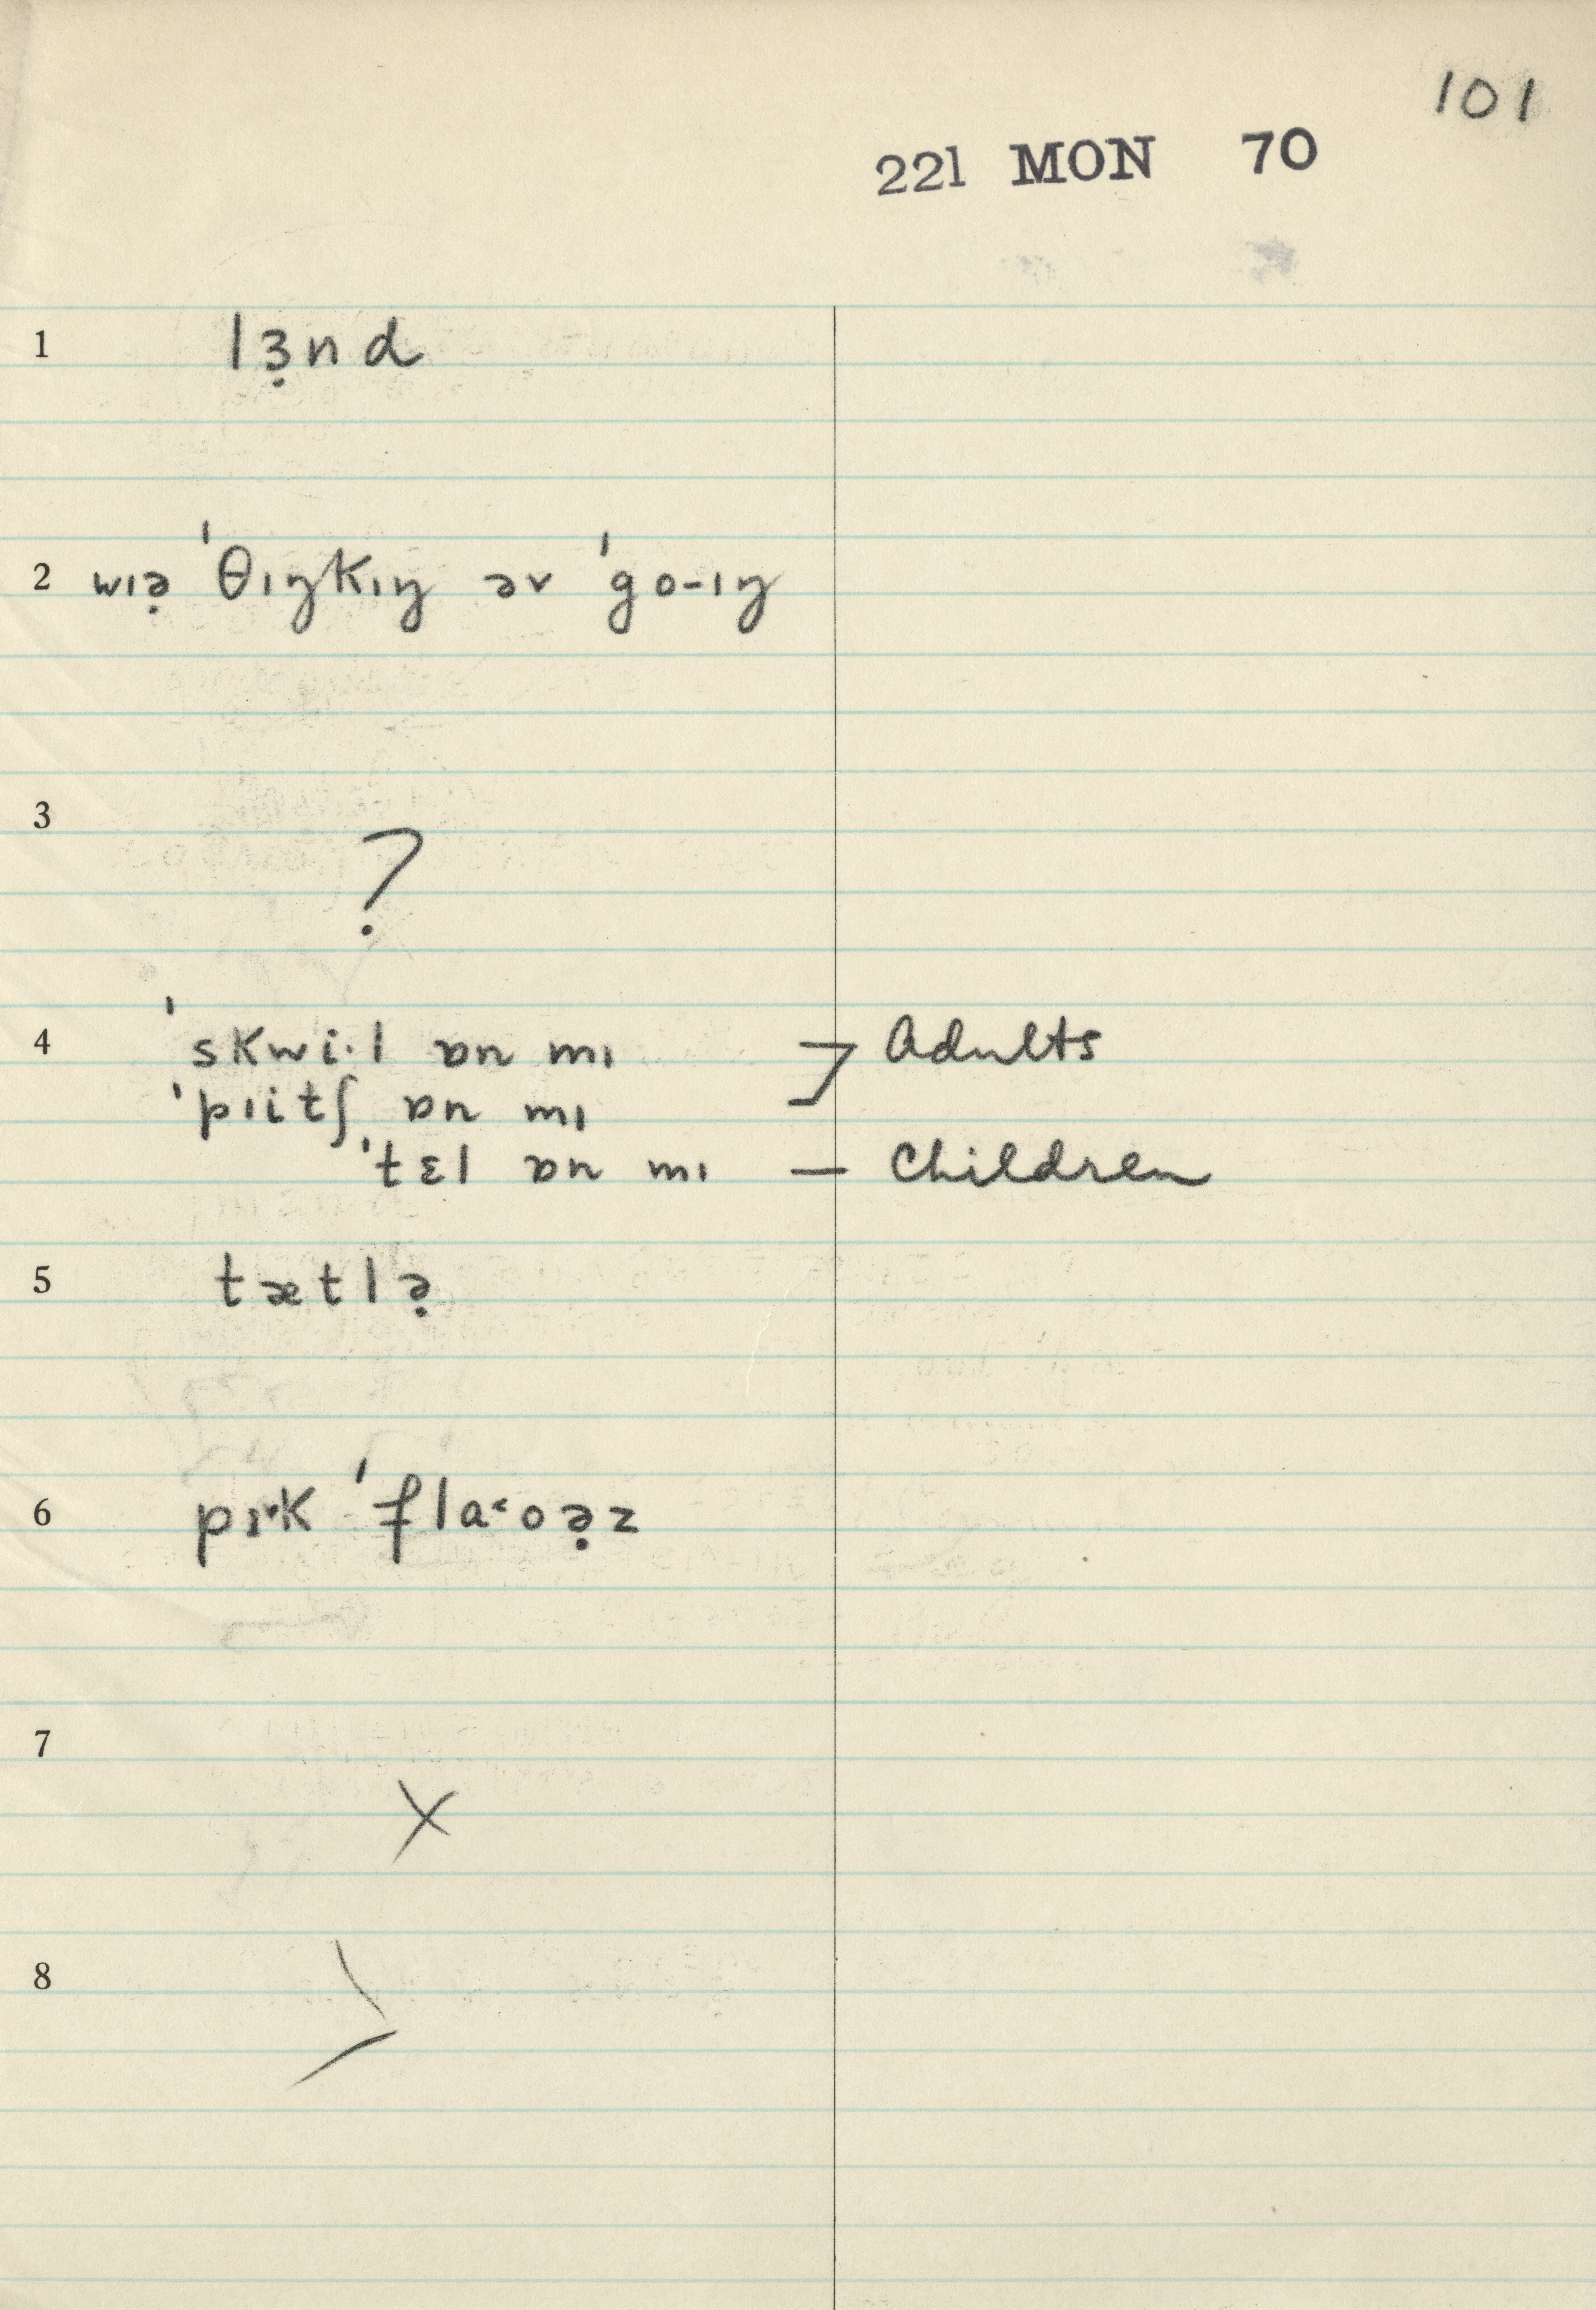 101
221 MON 70
1 lɜ̣nd
2 wɪə̣ ˈθɪŋkɪŋ əv ˈgo-ɪŋ
3 ?
4 ˈskwi·l ɒn mɪ ] Adults
ˈpɪitʃ ɒn mɪ
ˈtɛl ɒn mɪ — Children
5 tætlə̣
6 pɪ˅k ˈfla˂oə̣z
7 X
8